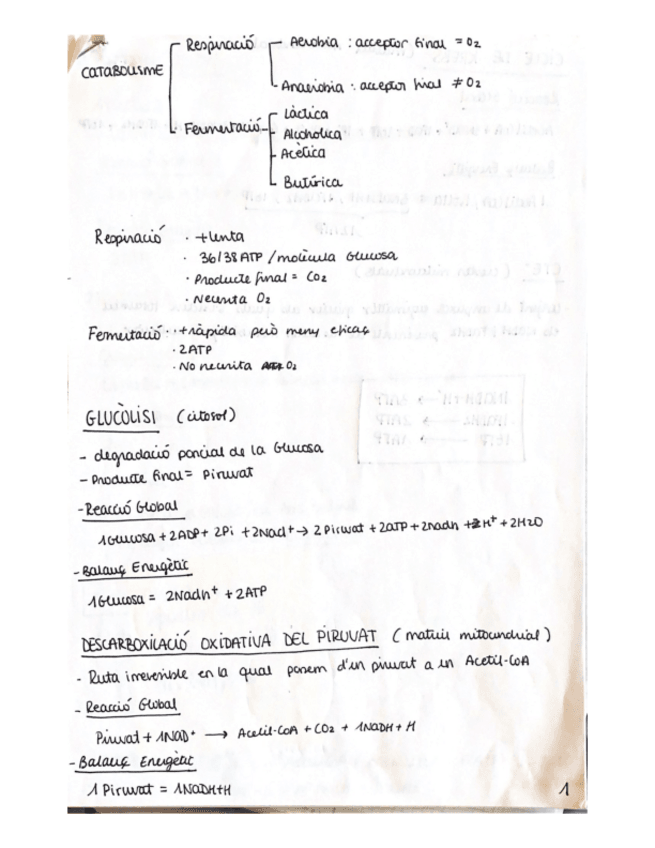 CATABOLISME
Respiració
Aeròbia : acceptor final = O2
Anaeròbia : acceptor final ≠ O2
Fermentació
Làctica
Alcohòlica
Acètica
Butírica
Respiració · + lenta
· 36/38 ATP / molècula Glucosa
· Producte final = CO2
· Necessita O2
Fermentació · + ràpida però meny eficaç
· 2 ATP
· No necessita O2
GLUCÒLISI (citosol)
- degradació parcial de la Glucosa
- Producte final = Piruvat
- Reacció Global
1 Glucosa + 2ADP + 2Pi + 2Nad+ → 2 Piruvat + 2ATP + 2nadh + 2H+ + 2H2O
- Balanç Energètic
1 Glucosa = 2Nadh+ + 2ATP
DESCARBOXILACIÓ OXIDATIVA DEL PIRUVAT (matriu mitocondrial)
- Ruta irreversible en la qual passem d'un piruvat a un Acetil-CoA
- Reacció Global
Piruvat + 1NAD+ → Acetil-CoA + CO2 + 1NADH + H
- Balanç Energètic
1 Piruvat = 1NADH+H
1